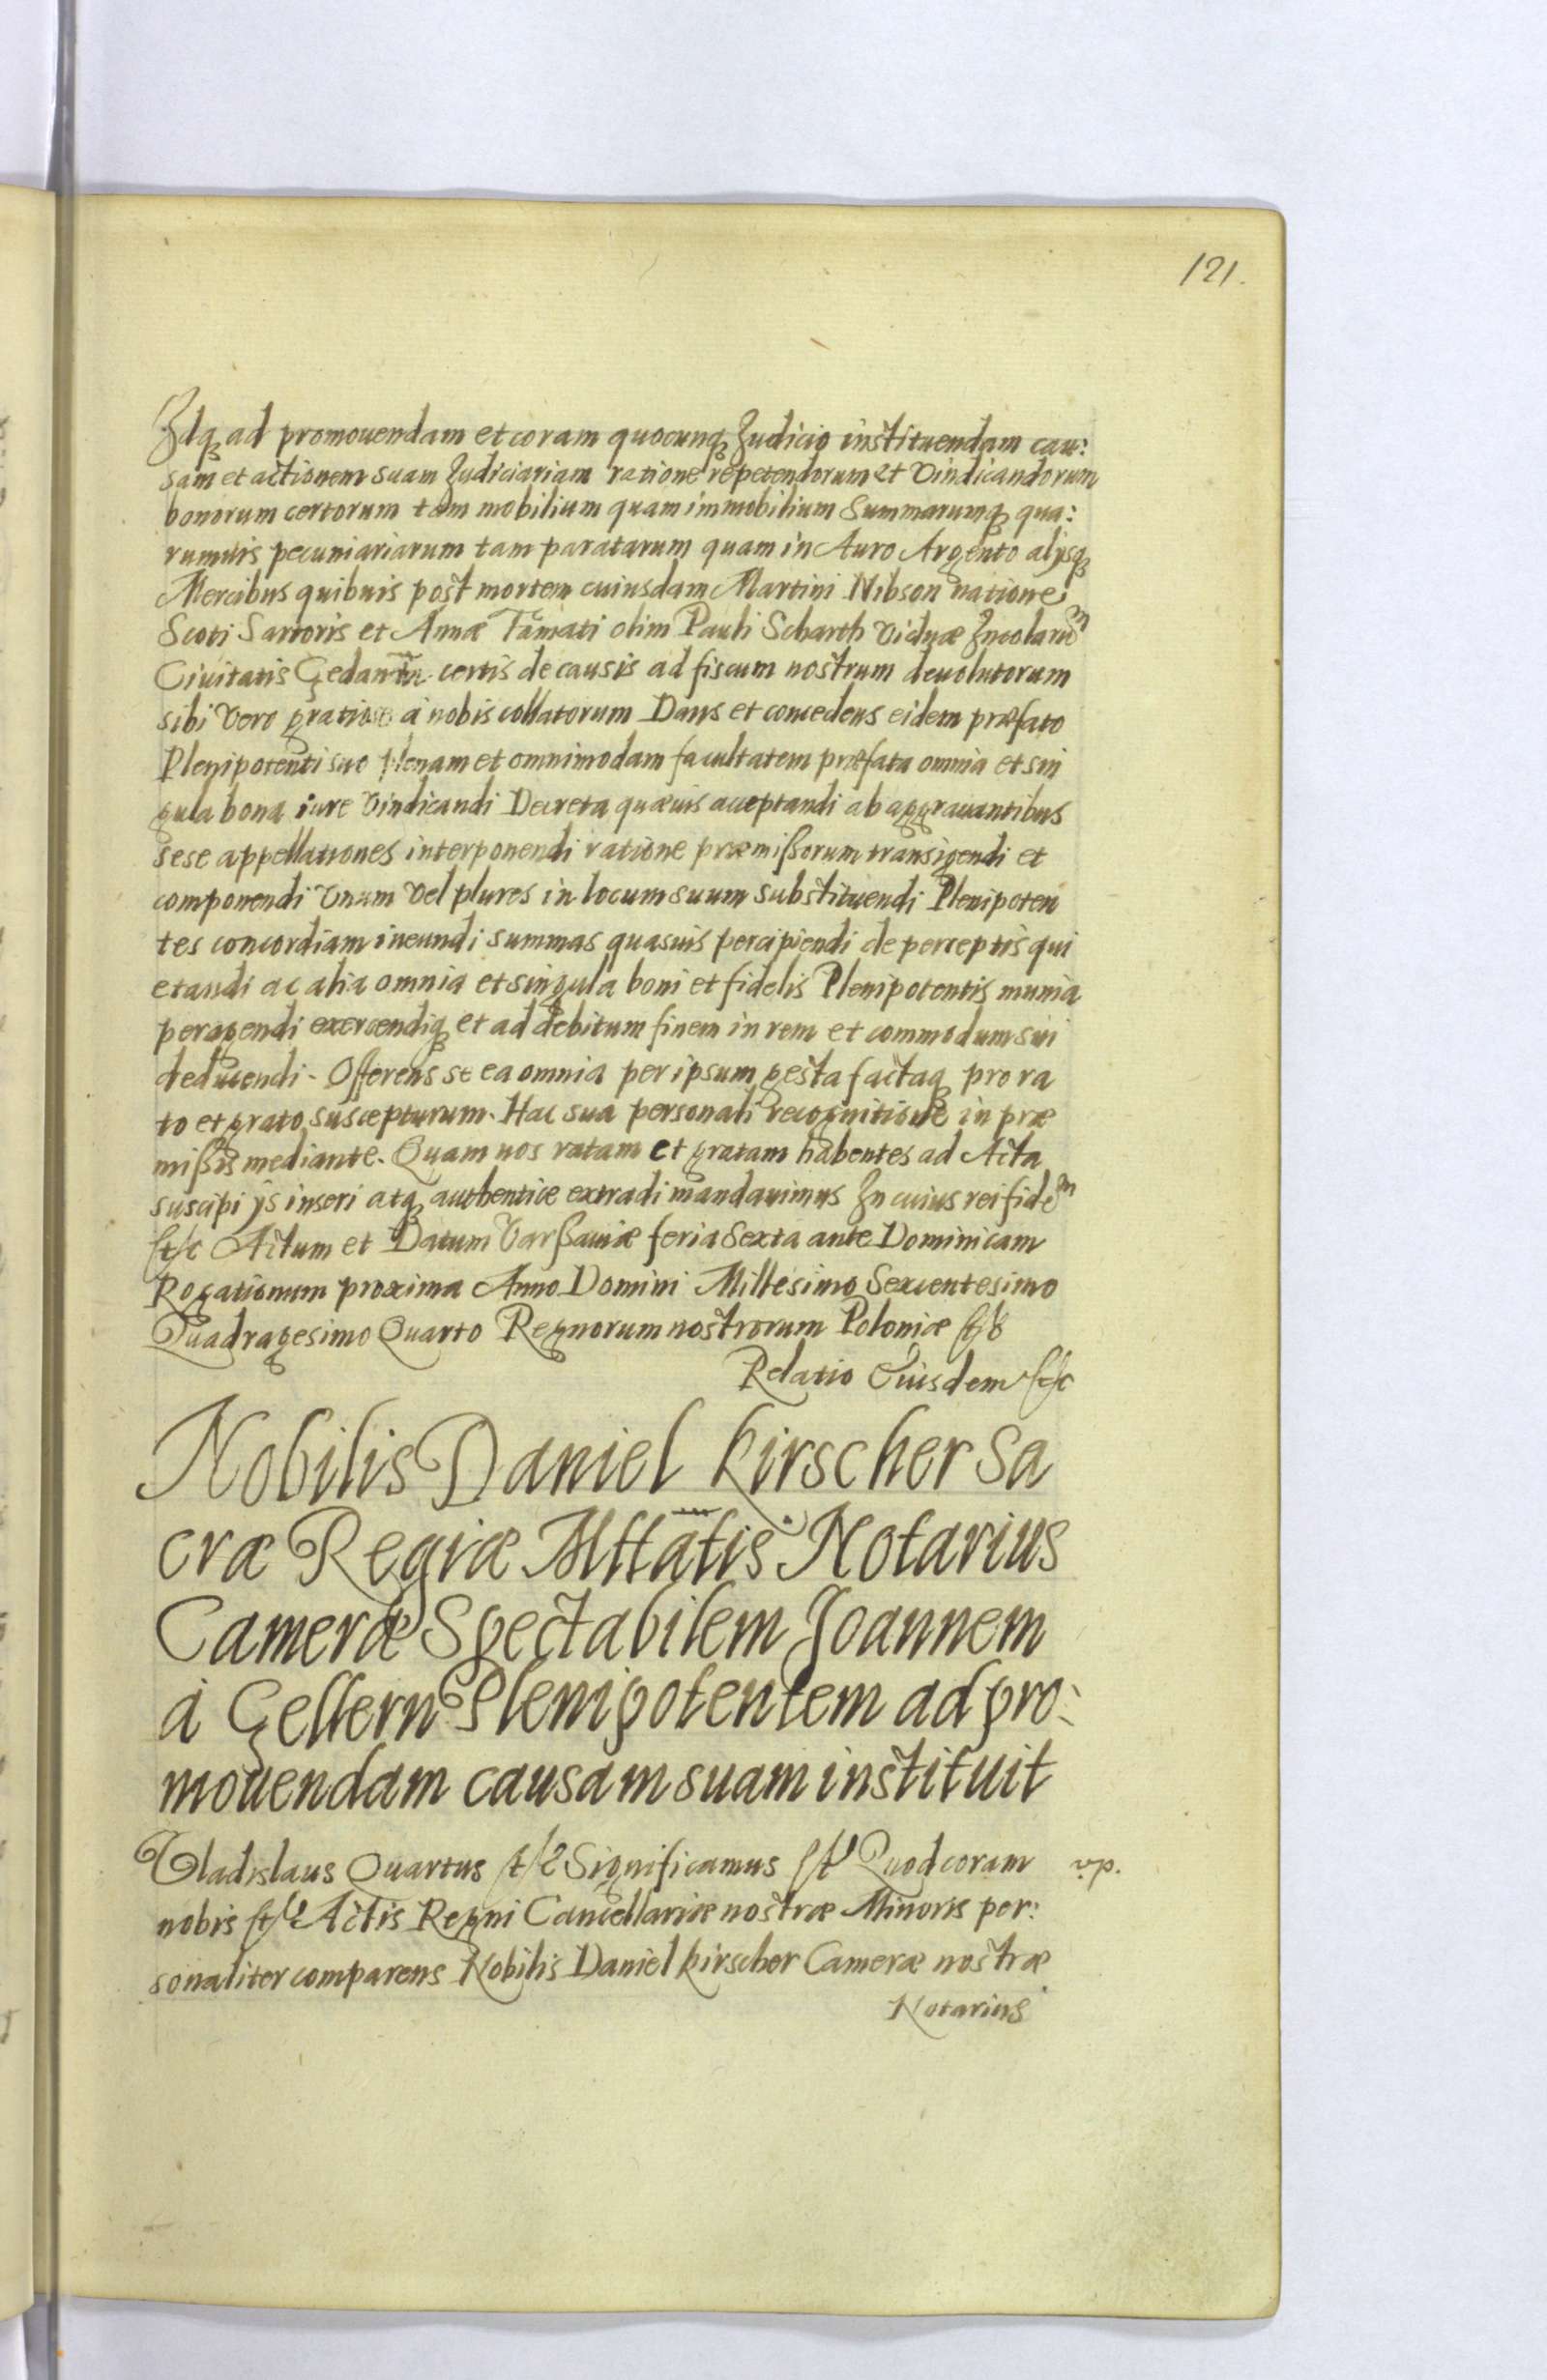 121.
Idq ad promouendam et coram quocunq Iudicio instituendam cau:
sam et actionem suam Iudiciariam ratione repetendorum et vindicandorum
bonorum certorum tam mobilium quam immobilium Summarumq qua:
rumuis pecuniariarum tam paratarum quam in Auro Argento alijsq
Mercibus quibuis post mortem cuiusdam Martini Nibson natione
Scoti Sartoris et Annæ olim Pauli Scharth viduæ Incolarum
Ciuitatis Gedanen certis de causis ad fiscum nostrum deuolutorum
sibi vero gratiose à nobis collatorum Dans et concedens eidem præfato
Plenipotenti suo plenam et omnimodam facultatem præfata omnia et sin
gula bona iure vindicandi Decreta quæuis acceptandi ab aggrauantibus
sese appellationes interponendi ratione præmißorum transigendi et
componendi vnum vel plures in locum suum substituendi Plenipoten
tes concordiam ineundi summas quasuis percipiendi de perceptis qui
etandi ac alia omnia et singula boni et fidelis Plenipotentis munia
peragendi exercendiq et ad debitum finem in rem et commodum sui
deducendi. Offerens se ea omnia per ipsum gesta factaq pro ra
to et grato suscepturum. Hac sua personali recognitione in præ
mißis mediante. Quam nos ratam et gratam habentes ad Acta
suscipi ijs inseri atq authentice extradi mandauimus In cuius rei fidem
etc Actum et Datum Varßauiæ feria Sexta ante Dominicam
Rogationum proxima Anno Domini Millesimo Sexcentesimo
Quadragesimo Quarto Regnorum nostrorum Poloniæ etc
Relatio Eiusdem etc
Nobilis Daniel Kirscher Sa
cræ Regiæ Mttatis Notarius
Cameræ Spectabilem Joannem
à Gellern Plenipotentem ad pro:
mouendam causam suam instituit
Vladislaus Quartus etc Significamus etc Quod coram vp.
nobis etc Actis Regni Cancellariæ nostræ Minoris per:
sonaliter comparens Nobilis Daniel Kirscher Cameræ nostræ
Notarius